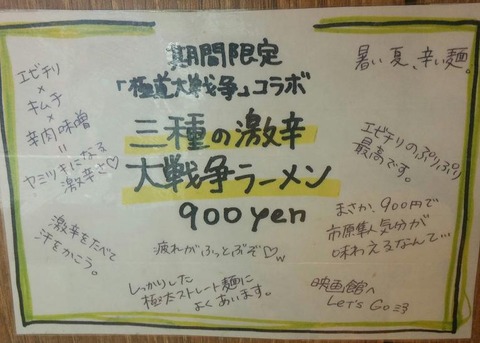 期間限定
「極道大戦争」コラボ
三種の激辛
大戦争ラーメン
900yen
エビチリ
×
キムチ
×
辛肉味噌
=
ヤミツキになる
激辛さ♡
激辛をたべて
汗をかこう。
疲れがふっとぶぞ♡w
しっかりした
極太ストレート麺に
よくあいます。
暑い夏、辛い麺。
エビチリのぷりぷり
最高です。
まさか、900円で
市原隼人気分が
味わえるなんて…
映画館へ
Let's Go